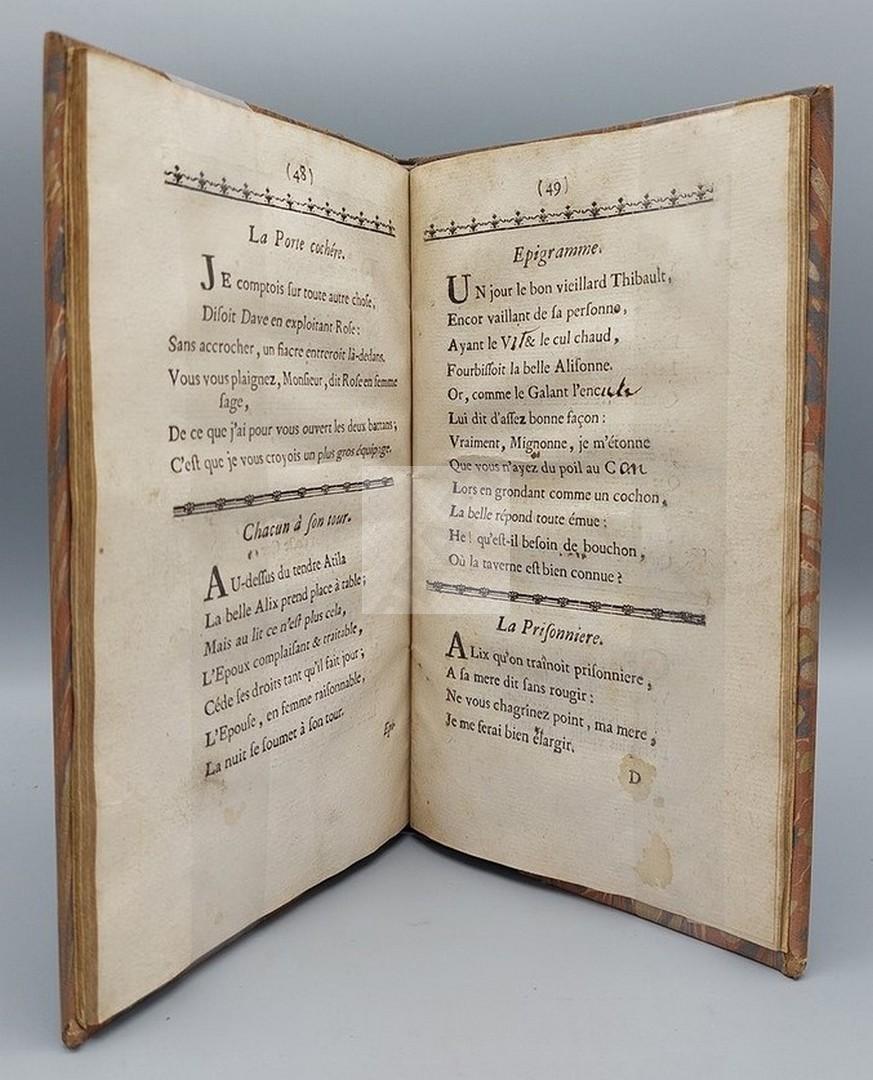 (48)
La Porte cochére.
JE comptois ſur toute autre choſe,
Diſoit Dave en exploitant Roſe:
Sans accrocher, un fiacre entreroit là-dedans.
Vous vous plaignez, Monſieur, dit Roſe en femme
ſage,
De ce que j'ai pour vous ouvert les deux battans;
C'eſt que je vous croyois un plus gros équipage.
Chacun à ſon tour.
AU-deſſus du tendre Atila
La belle Alix prend place à table;
Mais au lit ce n'eſt plus cela,
L'Epoux complaiſant & traitable,
Céde ſes droits tant qu'il fait jour;
L'Epouſe, en femme raiſonnable,
La nuit ſe ſoumet à ſon tour.
Epi-
(49)
Epigramme.
UN jour le bon vieillard Thibault,
Encor vaillant de ſa perſonne,
Ayant le Vit & le cul chaud,
Fourbiſſoit la belle Aliſonne.
Or, comme le Galant l'encule
Lui dit d'aſſez bonne façon:
Vraiment, Mignonne, je m'étonne
Que vous n'ayez du poil au Con
Lors en grondant comme un cochon,
La belle répond toute émue:
He! qu'eſt-il beſoin de bouchon,
Où la taverne eſt bien connue?
La Priſonniere.
ALix qu'on traînoit priſonniere,
A ſa mere dit ſans rougir:
Ne vous chagrinez point, ma mere,
Je me ferai bien élargir.
D